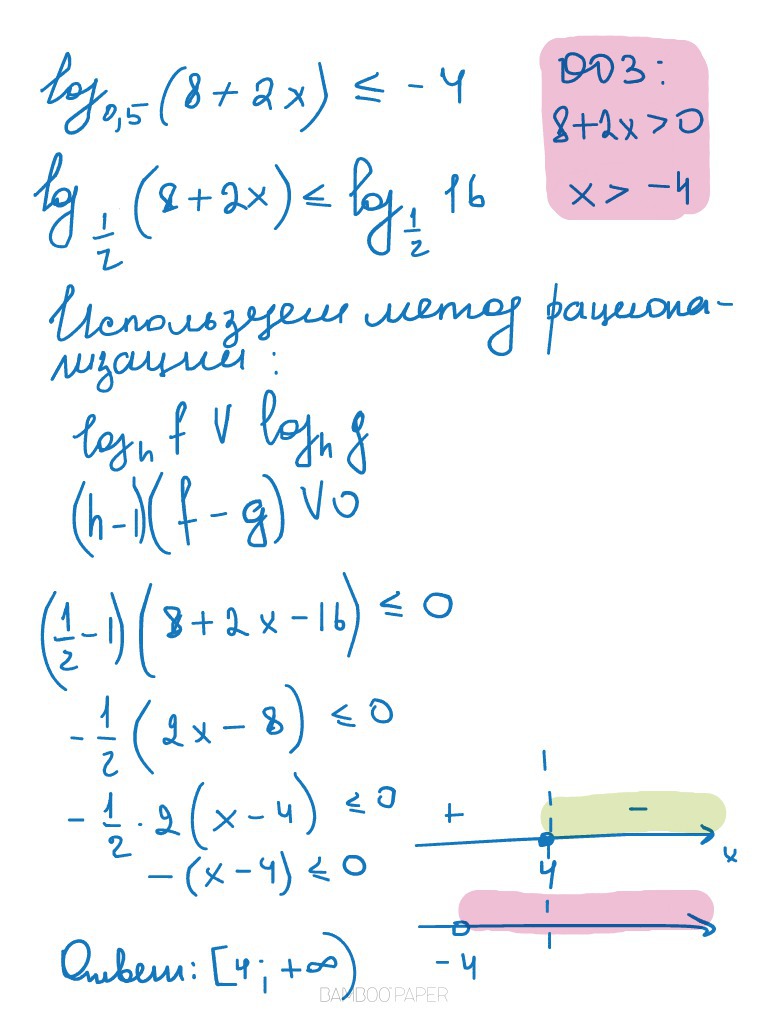 log₀,₅ (8 + 2x) ≤ - 4
ОДЗ:
8+2x > 0
x > -4
log_{1/2} (8 + 2x) ≤ log_{1/2} 16
Используем метод рациона-
лизации:
logₕ f V logₕ g
(h - 1)(f - g) V 0
(1/2 - 1)(8 + 2x - 16) ≤ 0
- 1/2 (2x - 8) ≤ 0
- 1/2 · 2 (x - 4) ≤ 0
- (x - 4) ≤ 0
+ -
4 x
-4
Ответ: [4; +∞)
BAMBOO PAPER